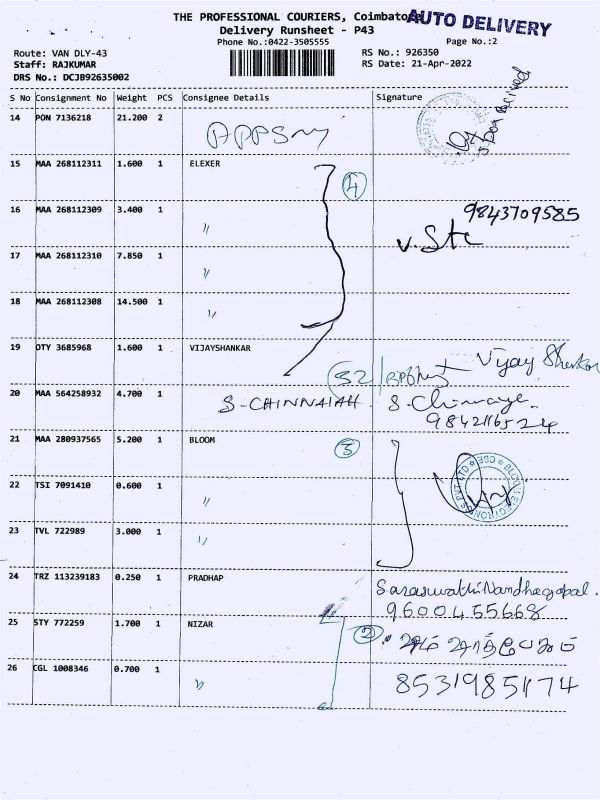 THE PROFESSIONAL COURIERS, Coimbatore
AUTO DELIVERY
Delivery Runsheet - P43
Phone No.:0422-3505555
Page No.:2
Route: VAN DLY-43
RS No.: 926350
Staff: RAJKUMAR
RS Date: 21-Apr-2022
DRS No.: DCJB92635002
S No Consignment No Weight PCS Consignee Details Signature
14 PON 7136218 21.200 2
5 Box Received
15 MAA 268112311 1.600 1 ELEXER
4
16 MAA 268112309 3.400 1 〃 9843709585
17 MAA 268112310 7.850 1 〃
18 MAA 268112308 14.500 1 〃
19 OTY 3685968 1.600 1 VIJAYSHANKAR
Vijay Shankar
20 MAA 564258932 4.700 1 S-CHINNAIAH
9842116524
21 MAA 280937565 5.200 1 BLOOM 3
BLOOM ELECTRONICS PVT LTD CBE
22 TSI 7091410 0.600 1 〃
23 TVL 722989 3.000 1 〃
24 TRZ 113239183 0.250 1 PRADHAP Saraswathi Nandhagopal.
9600455668
25 STY 772259 1.700 1 NIZAR 2
26 CGL 1008346 0.700 1 〃 8531985174